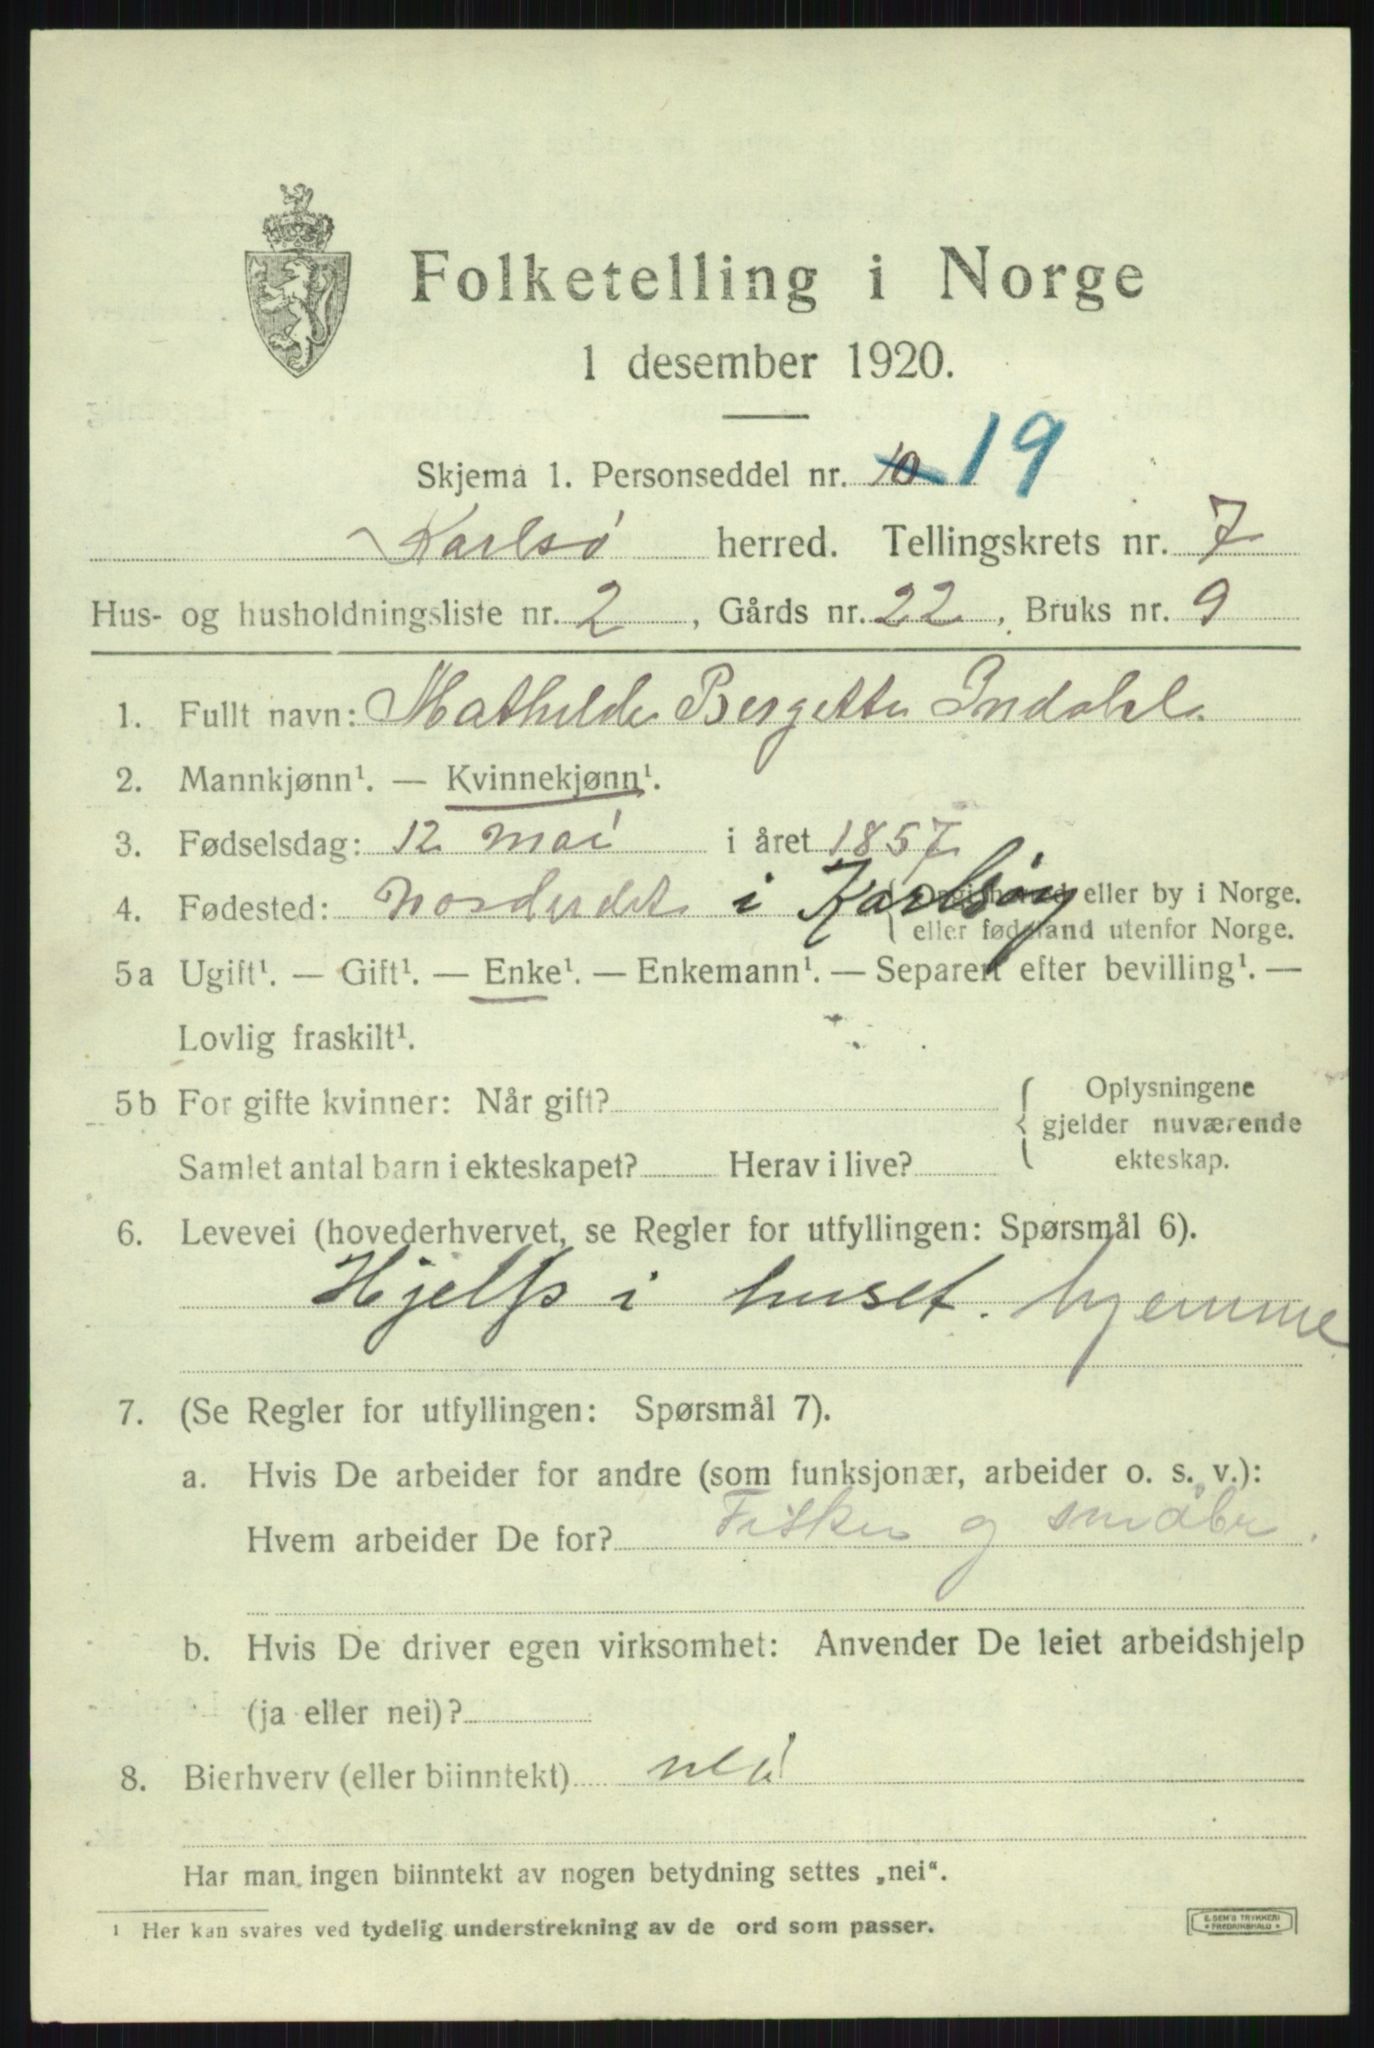 Folketelling i Norge
1 desember 1920.
Skjema 1. Personseddel nr. 10 19
Karlsø herred. Tellingskrets nr. 7
Hus- og husholdningsliste nr. 2, Gårds nr. 22, Bruks nr. 9
1. Fullt navn: Mathilde Bergette Indahl.
2. Mannkjønn¹. — Kvinnekjønn¹.
3. Fødselsdag: 12 mai i året 1857
4. Fødested: i Karlsøy { Opgi herred eller by i Norge.
eller fødeland utenfor Norge.
5a Ugift¹. — Gift¹. — Enke¹. — Enkemann¹. — Separert efter bevilling¹. —
Lovlig fraskilt¹.
5b For gifte kvinner: Når gift? { Oplysningene
gjelder nuværende
Samlet antal barn i ekteskapet? Herav i live? ekteskap.
6. Levevei (hovederhvervet, se Regler for utfyllingen: Spørsmål 6).
Hjelp i huset. hjemme
7. (Se Regler for utfyllingen: Spørsmål 7).
a. Hvis De arbeider for andre (som funksjonær, arbeider o. s. v.):
Hvem arbeider De for? Fisker og småbr.
b. Hvis De driver egen virksomhet: Anvender De leiet arbeidshjelp
(ja eller nei)?
8. Bierhverv (eller biinntekt) nei
Har man ingen biinntekt av nogen betydning settes „nei“.
¹ Her kan svares ved tydelig understrekning av de ord som passer.
E. SEM'S TRYKKERI
* FREDRIKSHALD *